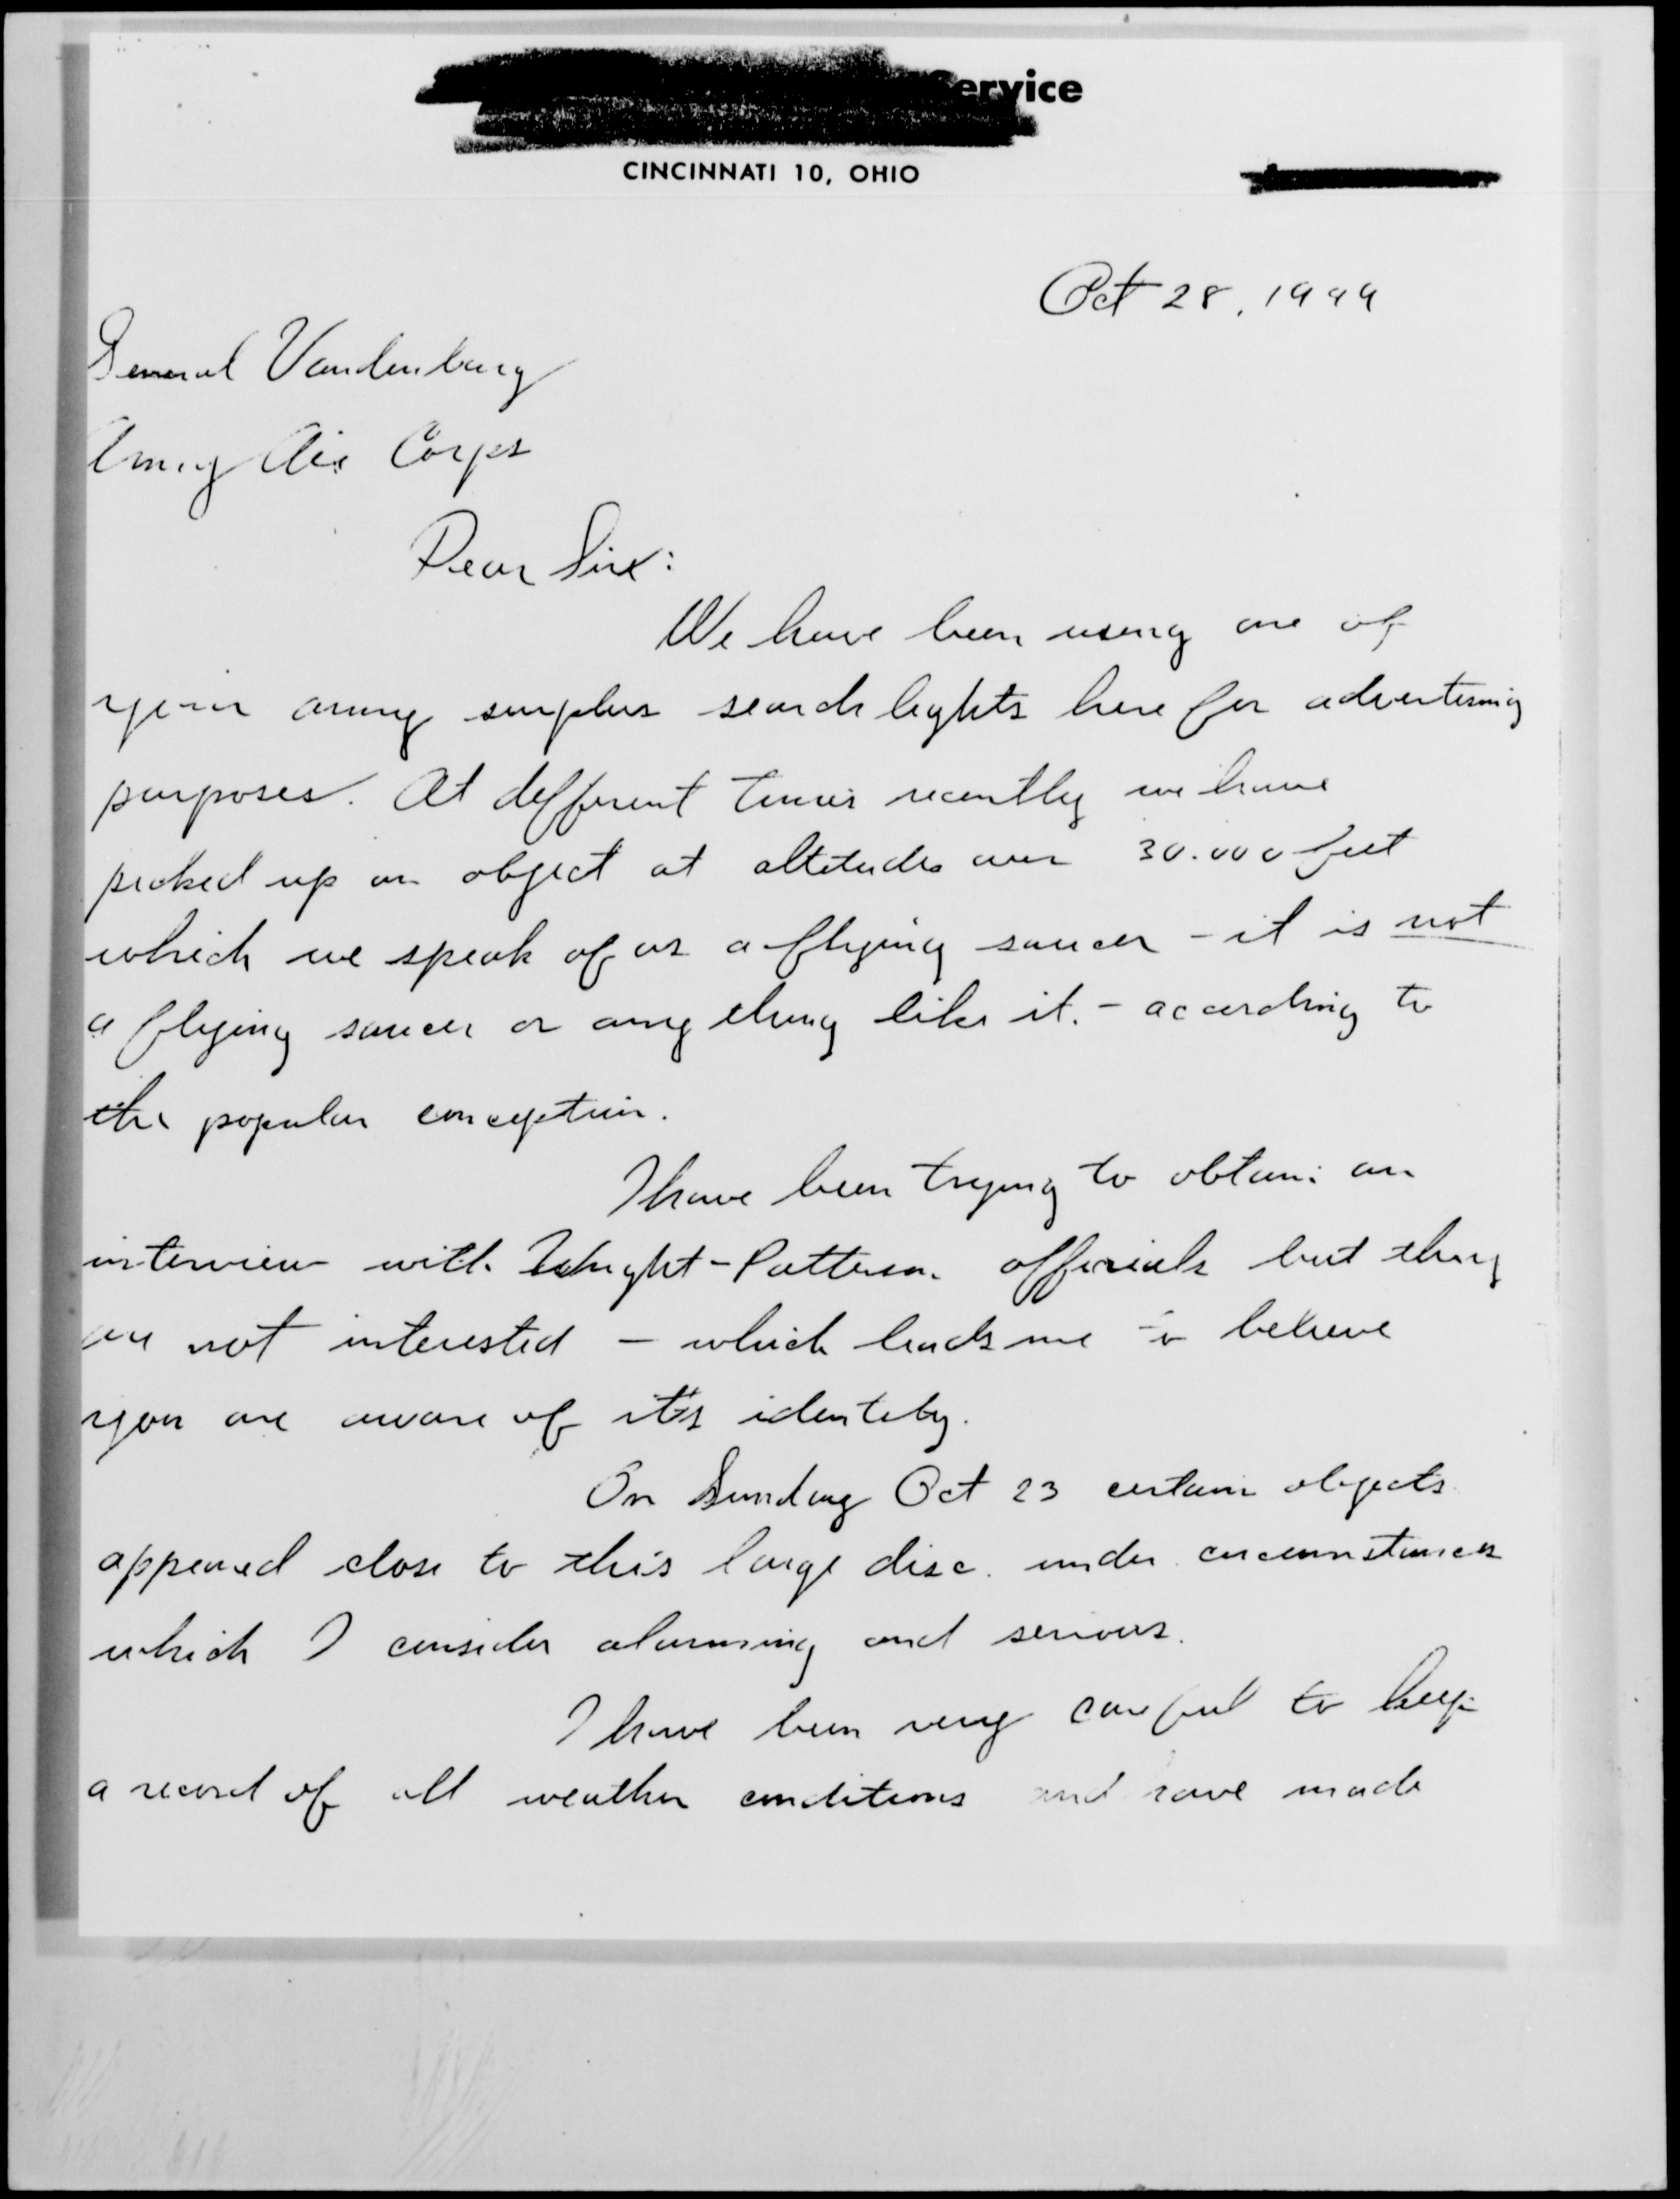 ervice
CINCINNATI 10, OHIO
Oct 28, 1949
General Vandenburg
Army Air Corps
Dear Sir:
We have been using one of
your army surplus search lights here for advertising
purposes. At different times recently we have
picked up an object at altitudes over 30.000 feet
which we speak of as a flying saucer - it is not
a flying saucer or any thing like it. - according to
the popular conception.
I have been trying to obtain an
interview with Wright-Patterson officials but they
are not interested - which leads me to believe
you are aware of it's identity.
On Sunday Oct 23 certain objects
appeared close to this large disc. under circumstances
which I consider alarming and serious.
I have been very careful to keep
a record of all weather conditions and have made